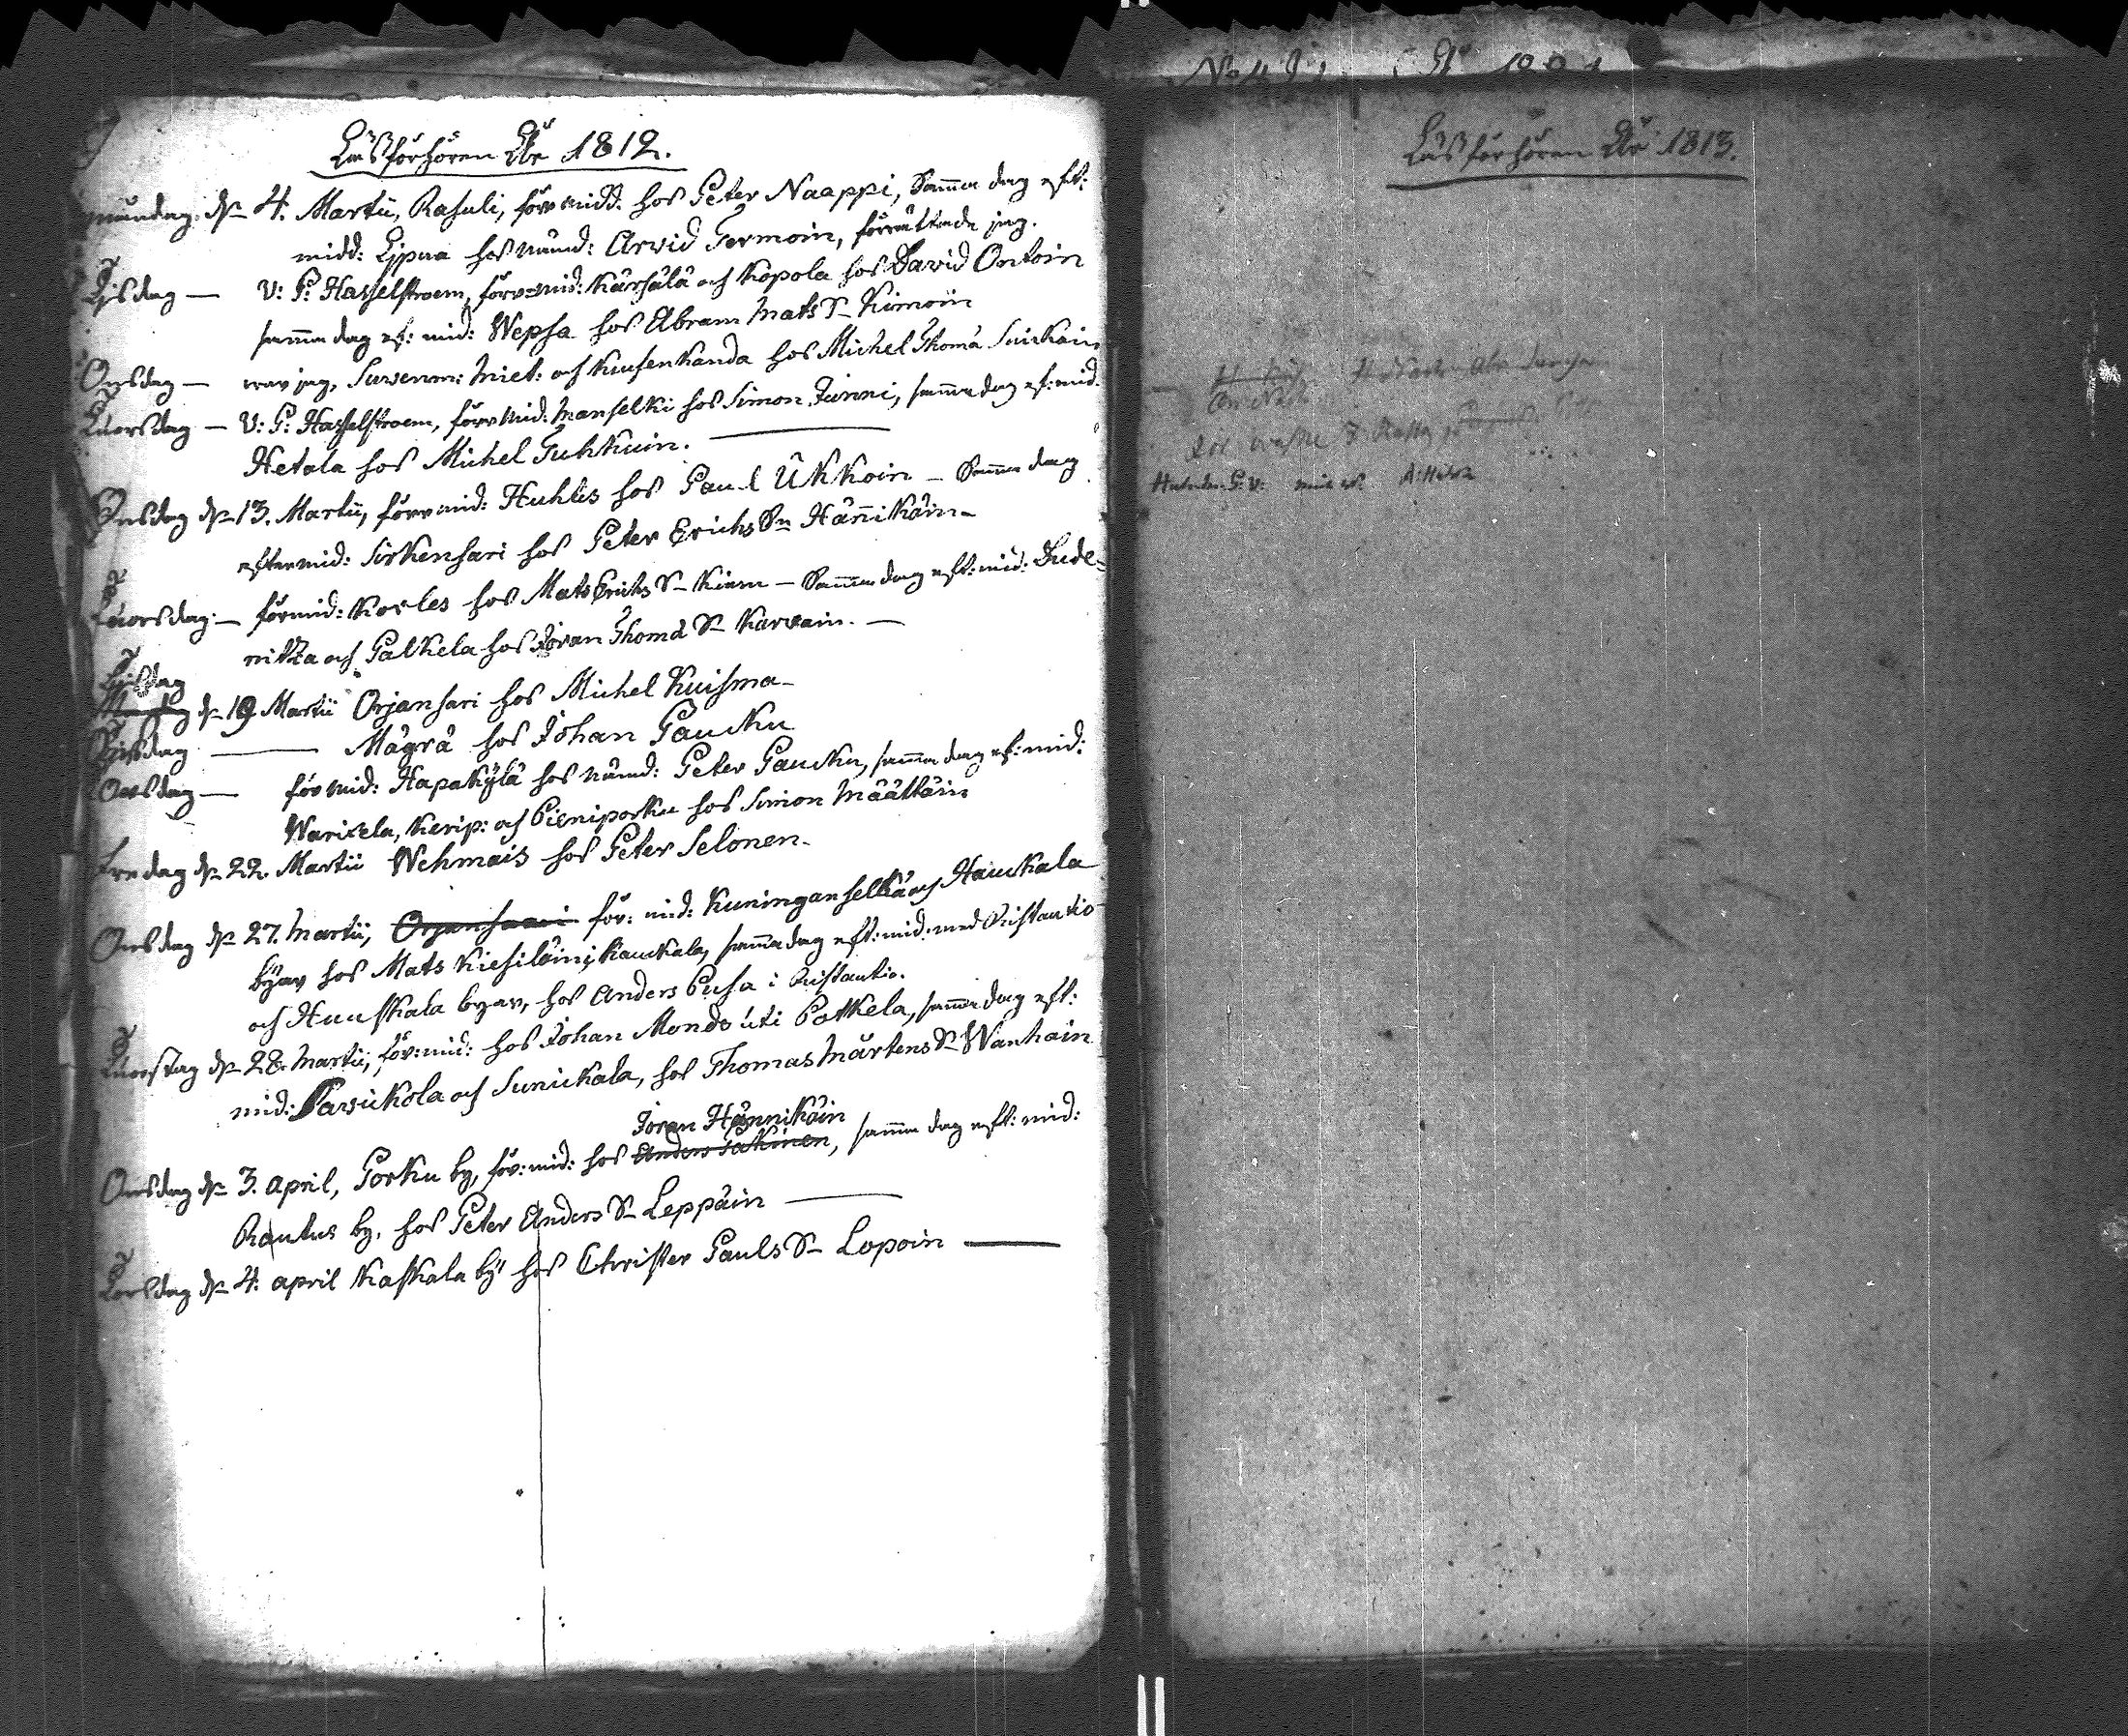 Läsförhören Åhr 1812.
måndag. dn 4. Martii, Rasuli, förr midd. hos Peter Naappi, Samma dag eft:
midd: Lipua hos nämd: Arvid Termoin, förrättade jag.
Tisdag — V: P: Hasselstroem, förr-mid: Kärsälä och Kopola hos David Ontoin
samma dag ef: mid: Wepsa hos Abram Mats Sn Kimoin
Onsdag — war jag, Suvenm: Miet: och Kuusenkanda hos Michel Thoma Suikain
Tuorsdag — V: P: Hasselstroem, förr mid: Manselki hos Simon Junni, samma dag ef: mid.
Hetala hos Michel Tuhkuin.
Onsdag dn 13. Martii, förr mid: Huhtis hos Paul Ukkoin — Samma dag
eftermid: Sirkensari hos Peter Erichs Sn Hännikäin —
Tuorsdag: — förmid: Korles hos Mats Erichs Sn Kiem — Samma dag eft: mid: Dude-
nitza och Palkela hos Jöran Thoma Sn Karvain. —
Tisdag
dn 19 Martii Orjansari hos Michel Kuisma —
Tisdag — Mägrä hos Johan Paucku
Onsdag — för mid: Hapakylä hos nämd: Peter Paucku, samma dag ef: mid:
Warixela, Kerip: och Pieniporku hos Simon Määttäin
Fredag dn 22. Martii Wehmais hos Peter Selonen.
Onsdag dn 27. Martii, Orjansaari för: mid: Kuninganselkä och Hauckala
byar hos Mats Kiesiläin i Hauckala, samma dag eft: mid: med Ristautio
och Huuskala byar, hos Anders Pusa i Ristautio.
Tuorstag dn 28. Martii, för: mid: hos Johan Mondo uti Potkela, samma dag eft:
mid: Savickola och Sunickala, hos Thomas Mårtens Sn Wanhain
Jöran Hännikäin
Onsdag dn 3. april, Porku by, för: mid: hos Anders Tatkinen, samma dag eft: mid:
Rautus by, hos Peter Anders Sn Leppäin —
Torsdag dn 4. april Kaskala by hos Christer Pauls Sn Lopoin —
Läsförhören Åhr 1813.